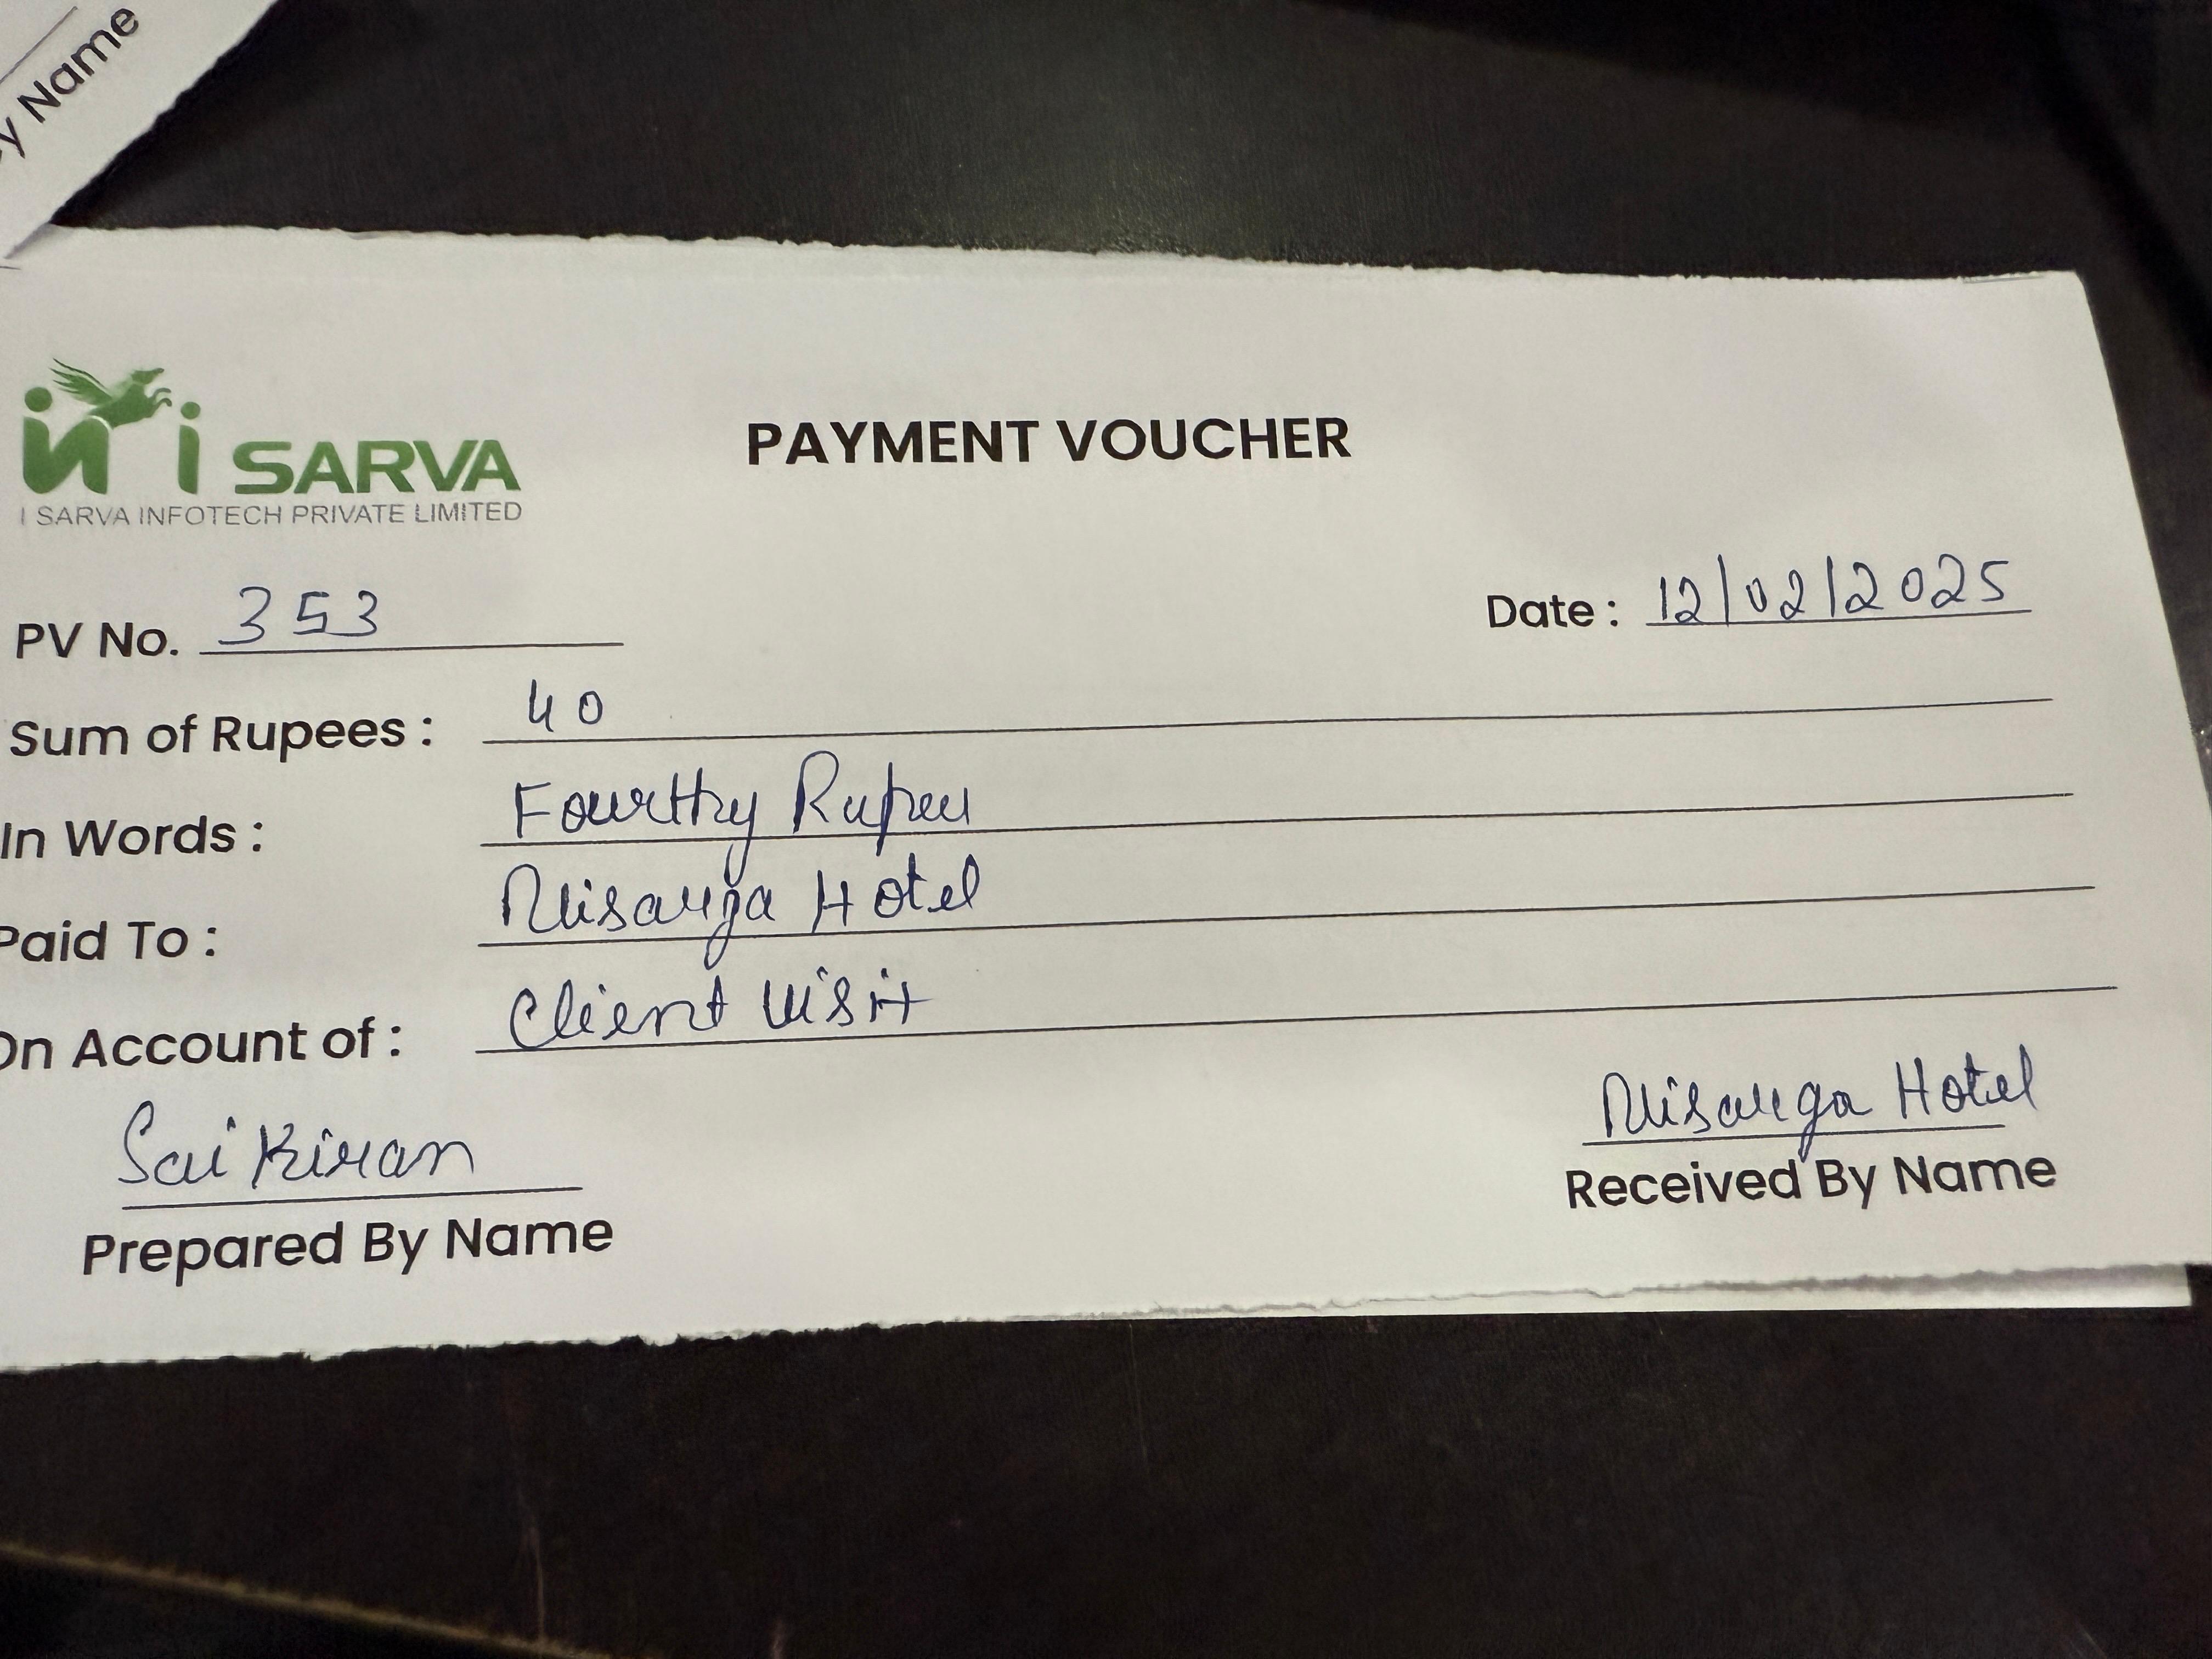 y Name
i SARVA
I SARVA INFOTECH PRIVATE LIMITED
PAYMENT VOUCHER
PV No. 353
Date : 12/02/2025
Sum of Rupees : 40
In Words : Fourthy Rupees
Paid To : Nisarga Hotel
On Account of : Client Visit
Sai Kiran
Prepared By Name
Nisarga Hotel
Received By Name